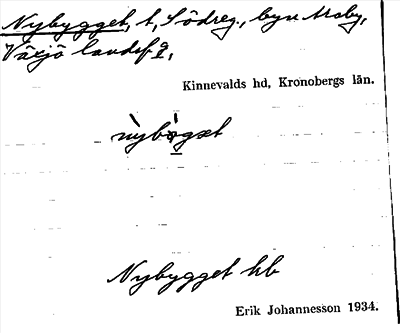 Nybygget, t, Södreg., byn Araby,
Växjö landsf.
Kinnevalds hd, Kronobergs län.
Nybygget hb
Erik Johannesson 1934.